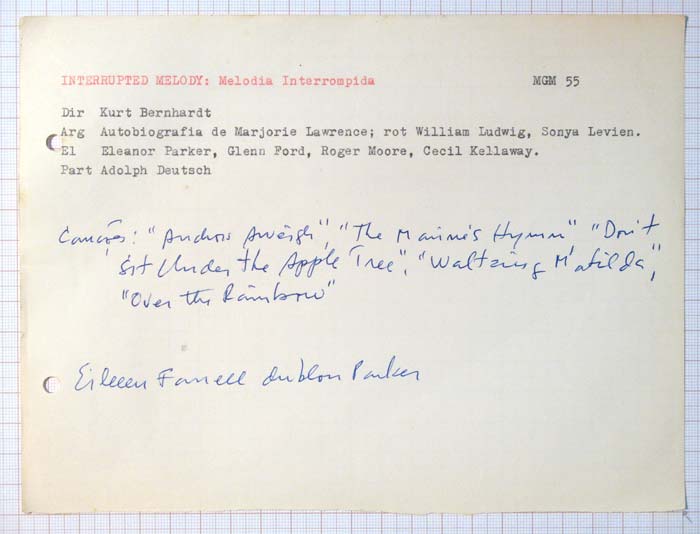 INTERRUPTED MELODY: Melodia Interrompida MGM 55
Dir Kurt Bernhardt
Arg Autobiografia de Marjorie Lawrence; rot William Ludwig, Sonya Levien.
El Eleanor Parker, Glenn Ford, Roger Moore, Cecil Kellaway.
Part Adolph Deutsch
Canções: "Anchors Aweigh", "The Marine's Hymn" "Don't
Sit Under the Apple Tree", "Waltzing Matilda",
"Over the Rainbow"
Eileen Farrell dublou Parker